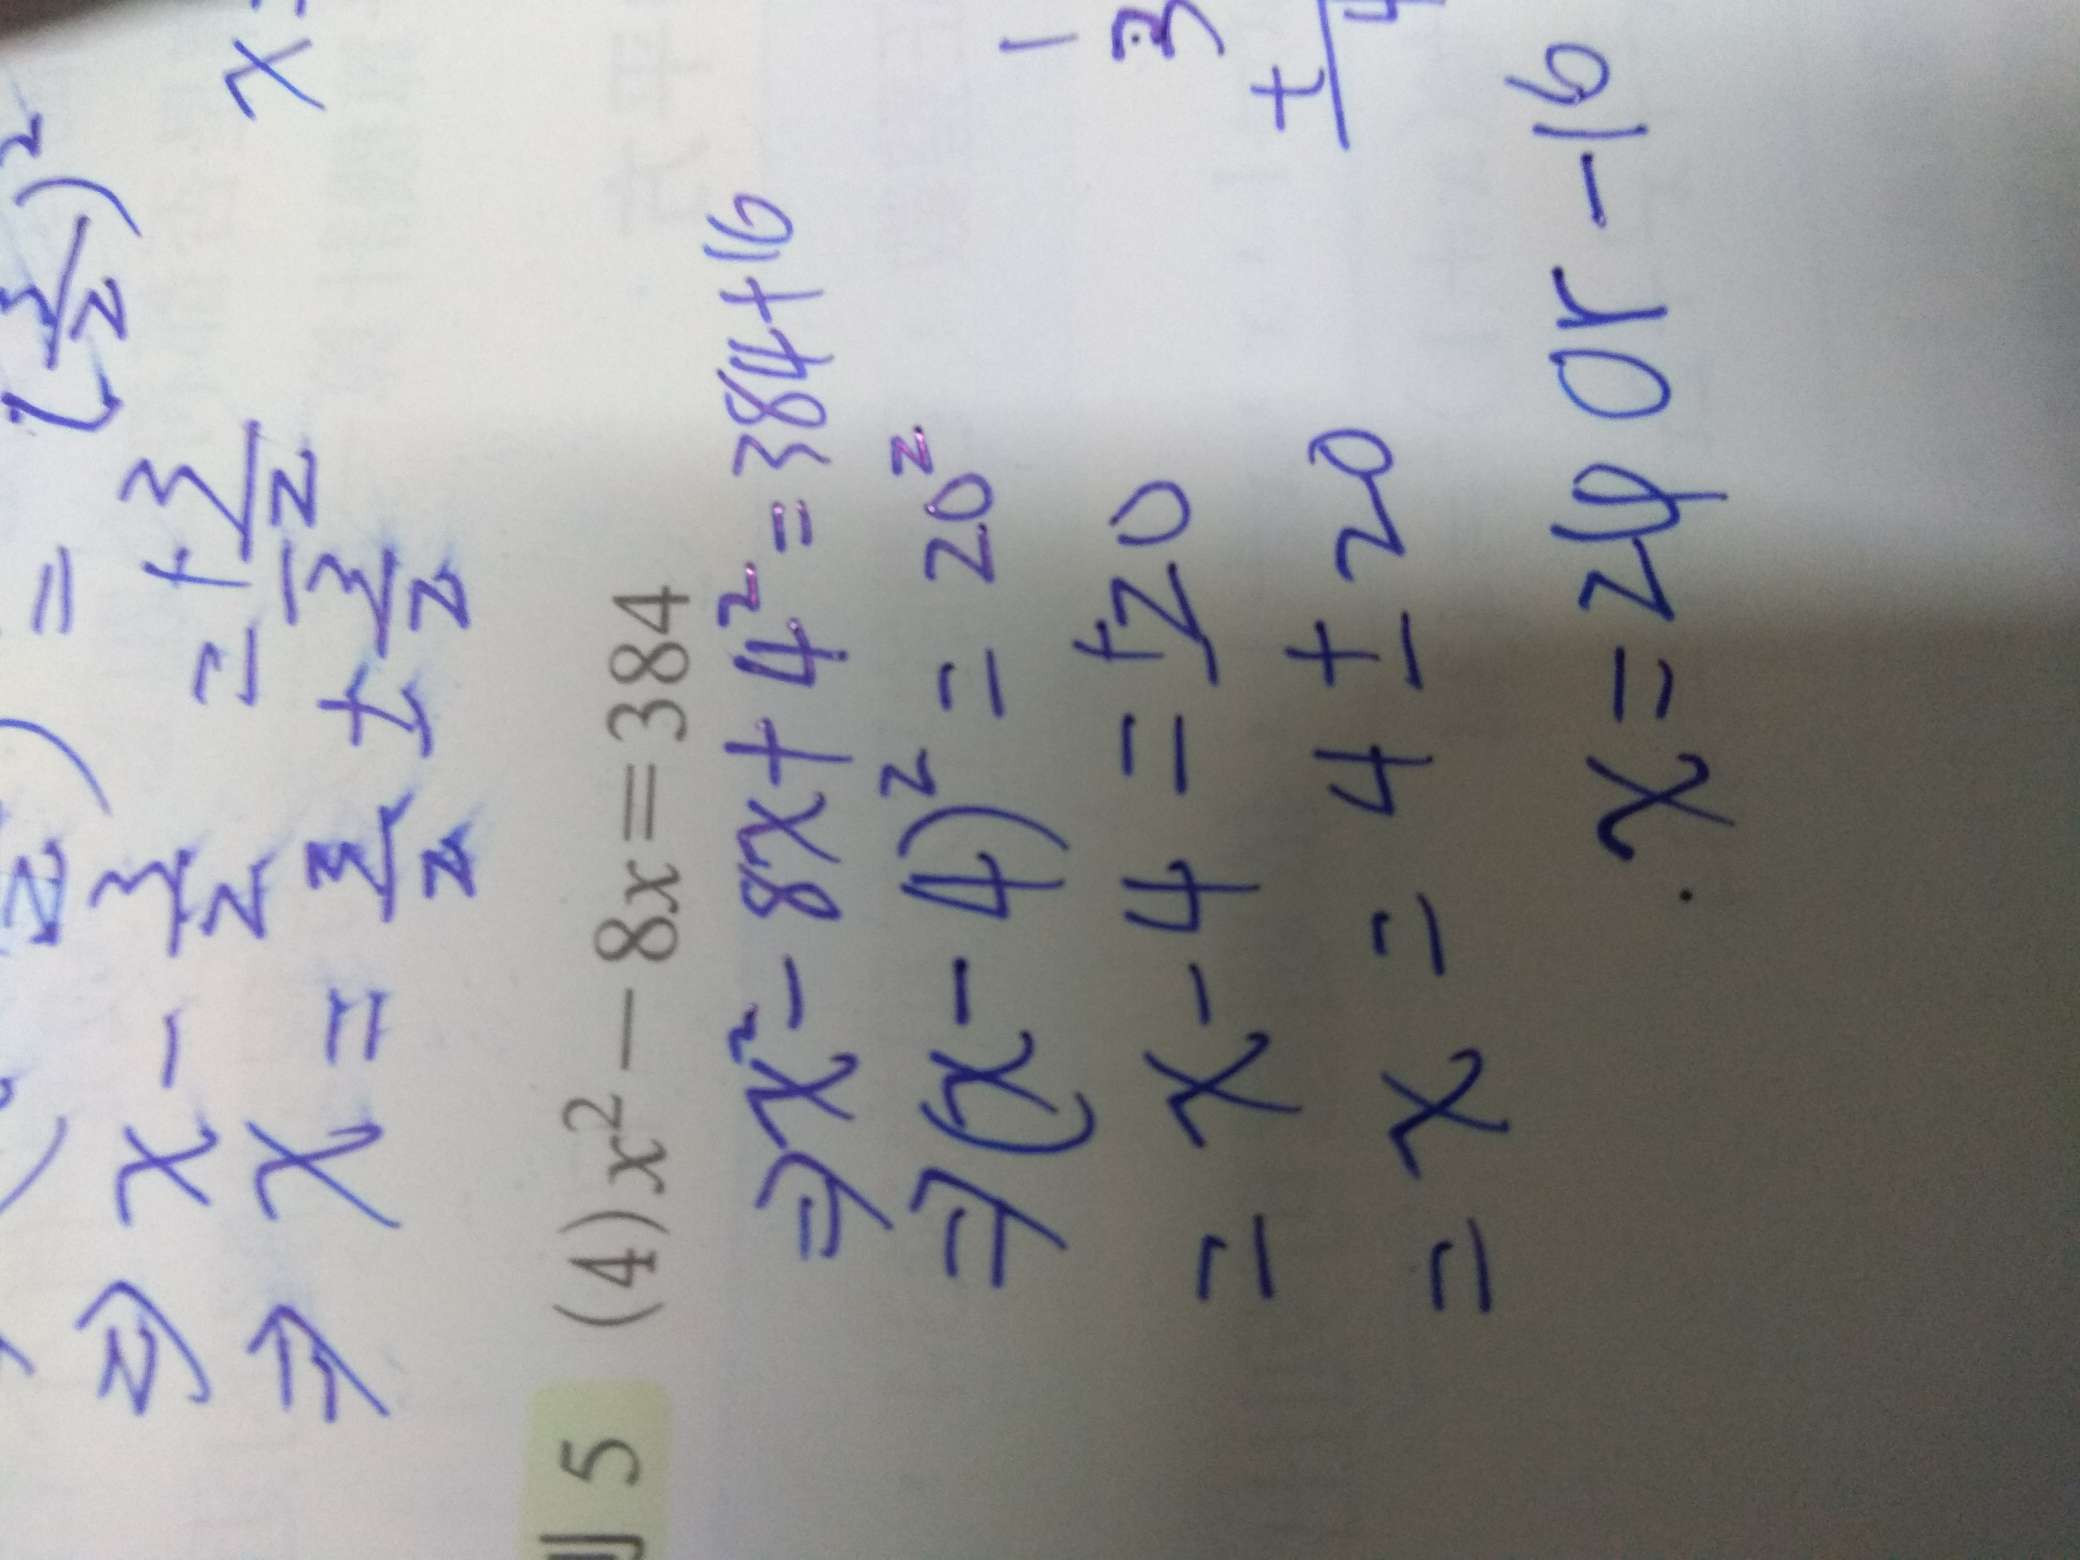 ⇒ x - 3/2 = ± 3/2
⇒ x = 3/2 ± 3/2
5 (4) x² - 8x = 384
⇒ x² - 8x + 4² = 384 + 16
⇒ (x - 4)² = 20²
= x - 4 = ±20
= x = 4 ± 20
∴ x = 24 or -16